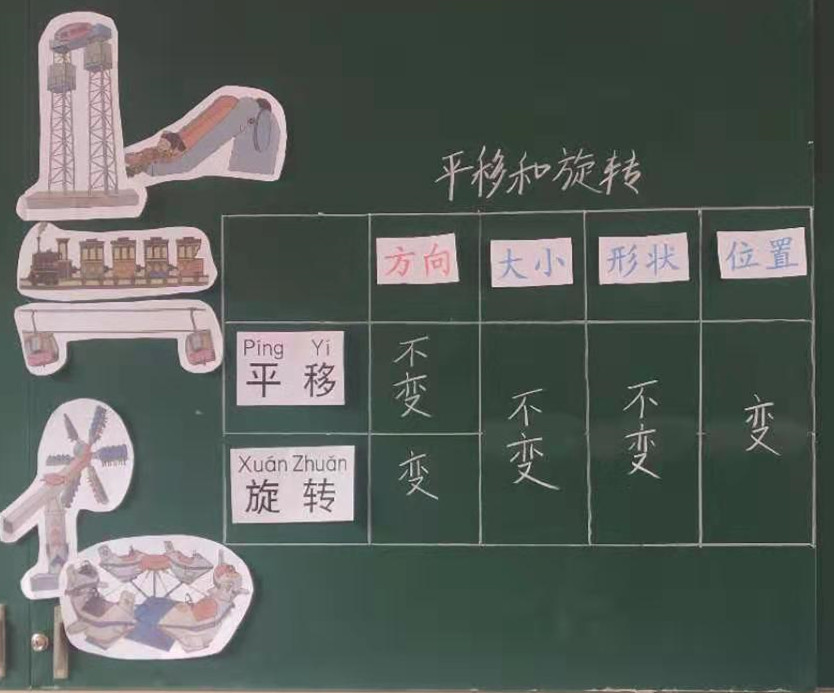 平移和旋转
方向 大小 形状 位置
Píng Yí
平移
不变
不变 不变 变
Xuán Zhuǎn
旋转
变